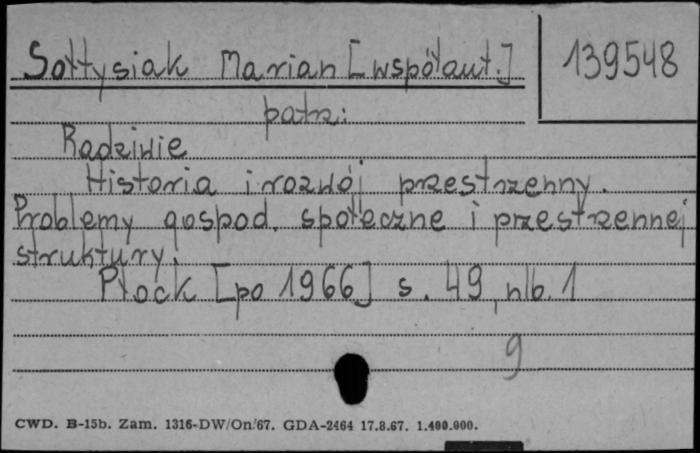 Sołtysiak Marian [współaut.]
139548
patrz:
Radziwie
Historia i rozwój przestrzenny.
Problemy gospod. społeczne i przestrzennej
struktury.
Płock [po 1966] s. 49, nlb. 1
9
CWD. B-15b. Zam. 1316-DW/On/67. GDA-2464 17.8.67. 1.400.000.